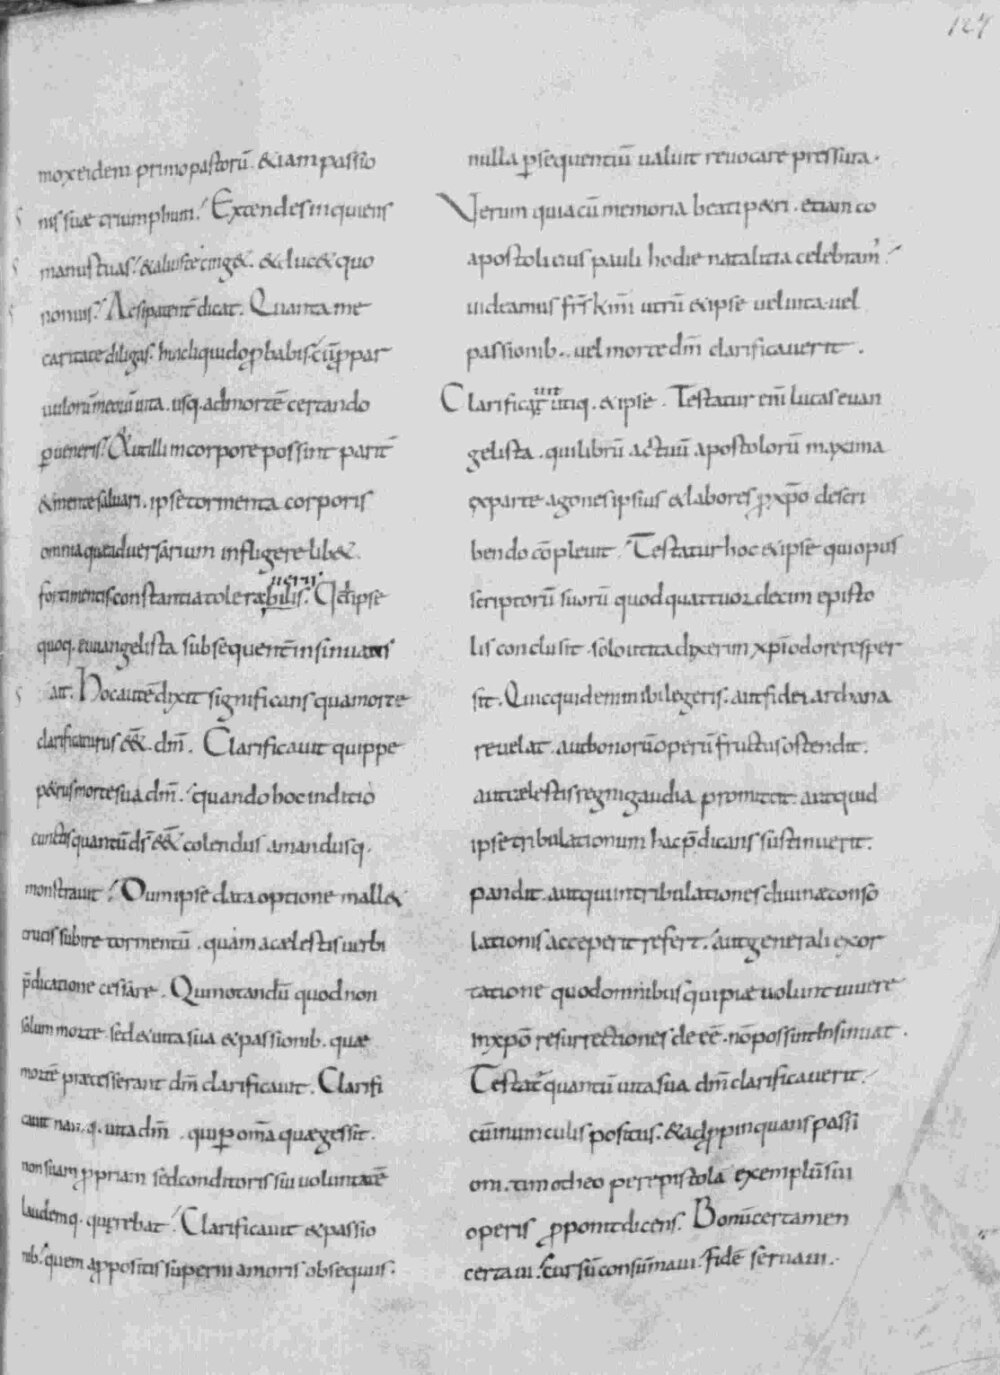 127
mox eidem primo pastorū. & iam passio
nis suæ triumphum. Extendes inquiens
manus tuas. & alius te cing&. & duc& quo
non uis. Ac si patent̄ dicat. Quanta me
caritate diligas. hinc liquido ꝓbabis. cū ꝑ par
uulorū meorū uita. usq. ad mortē certando
ꝑueneris. & ut illi in corpore possint parit̄
& mente saluari. ipse tormenta corporis
omnia quæ aduersarium infligere lib&.
forti mentis constantia toleraueris. Id ipse
quoq. euuangelista subsequent̄ insinuans
ait. Hoc autē dixit significans qua morte
clarificaturus ēē&. dm̄. Clarificauit quippe
p&rus morte sua dm̄. quando hoc inditio
cunctis quantū ds̄ ēē& colendus amandusq.
monstrauit. Dum ipse data optione mall&
crucis subire tormentū. quam a cælestis uerbi
p̄dicatione cessare. Qui notandū quod non
solum morte. sed & uita sua & passionib. quæ
mortē præcesserant dm̄ clarificauit. Clarifi
cauit nanq. uita dm̄. qui ꝑ om̄a quæ gessit.
non suam ꝓpriam sed conditoris sui uoluntatē
laudemq. quęrebat. Clarificauit & passio
nib. quem appositis superni amoris obsequiis.
nulla ꝑsequentiū ualuit reuocare pressura.
Verum quia cū memoria beati p&ri. etiam co
apostoli eius pauli hodie natalitia celebram'.
uideamus fr̄s km̄i utrū & ipse uel uita. uel
passionib. uel morte dm̄ clarificauerit.
Clarificauit utiq. & ipse. Testatur enī lucas euan
gelista. qui librū actuū apostolorū maxima
ex parte agones ipsius & labores ꝓ xp̄o descri
bendo cōpleuit. Testatur hoc & ipse qui opus
scriptorū suorū quod quattuordecim episto
lis conclusit. solo ut ita dixerim xp̄i odore resper
sit. Quicquid enim ibi legeris. aut fidei archana
reuelat. aut bonorū operū fructus ostendit.
aut cælestis regni gaudia promittit. aut quid
ipse tribulationum hæc p̄dicans sustinuerit.
pandit. aut qui in tribulationes diuinæ conso
lationis acceperit refert. aut generali exor
tatione quod omnibus qui pie uolunt uiuere
in xp̄o resurrectiones deēē. nō possint insinuat.
Testat̄ quantū uita sua dm̄ clarificauerit.
cū in uinculis positus. & adꝓpinquans passi
oni. timotheo per epistola exemplū sui
operis ꝓponit dicens. Bonū certamen
certaui. cursū consūmaui. fidē seruaui.